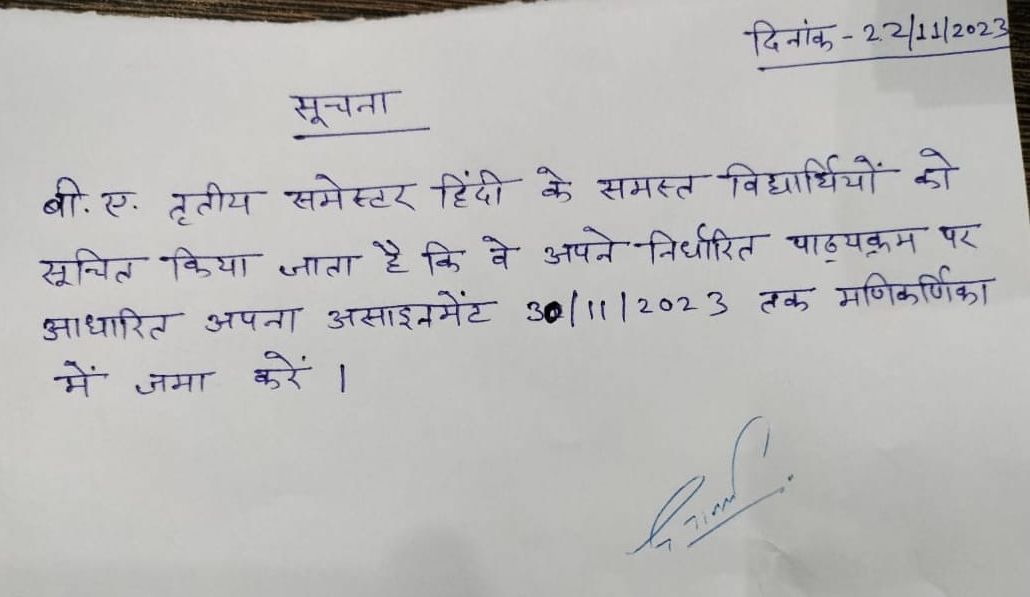 दिनांक - 22/11/2023
सूचना
बी. ए. तृतीय समेस्टर हिंदी के समस्त विद्यार्थियों को
सूचित किया जाता है कि वे अपने निर्धारित पाठ्यक्रम पर
आधारित अपना असाइनमेंट 30/11/2023 तक मणिकर्णिका
में जमा करें ।